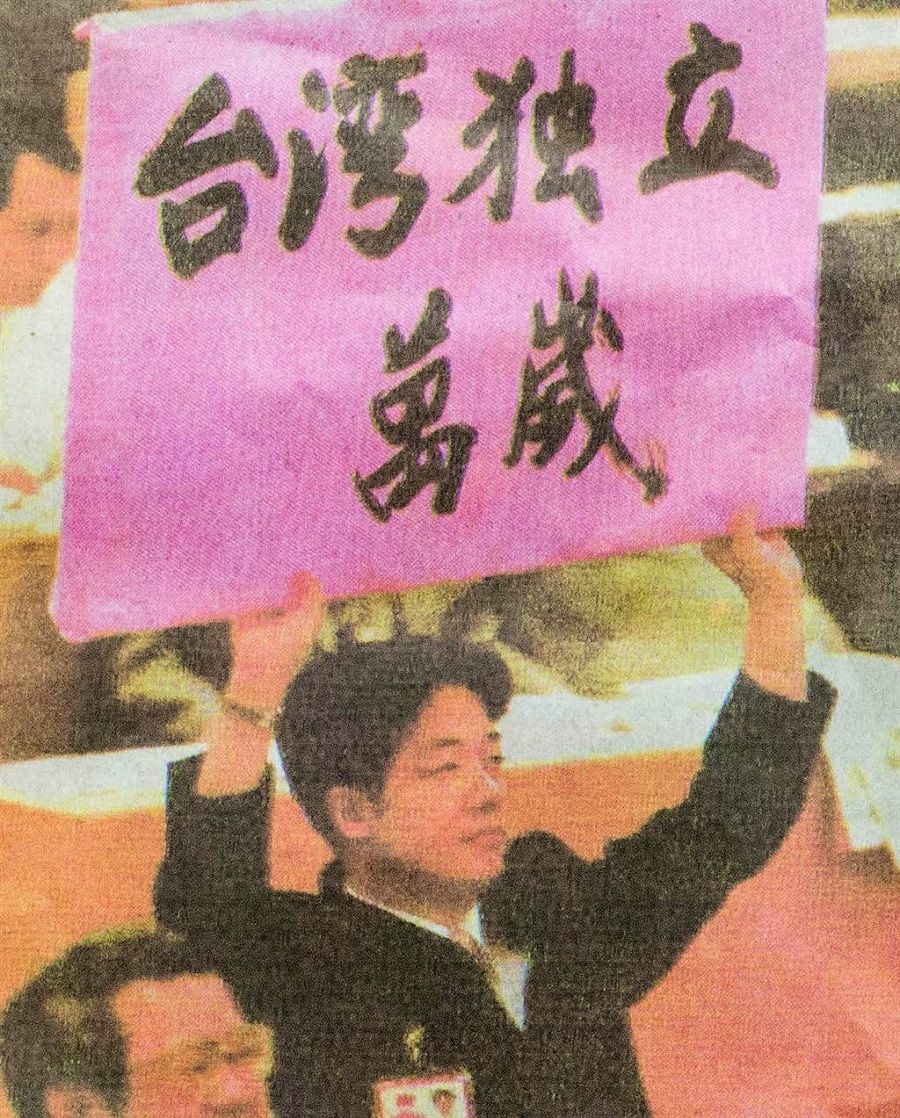 台湾独立
萬歲